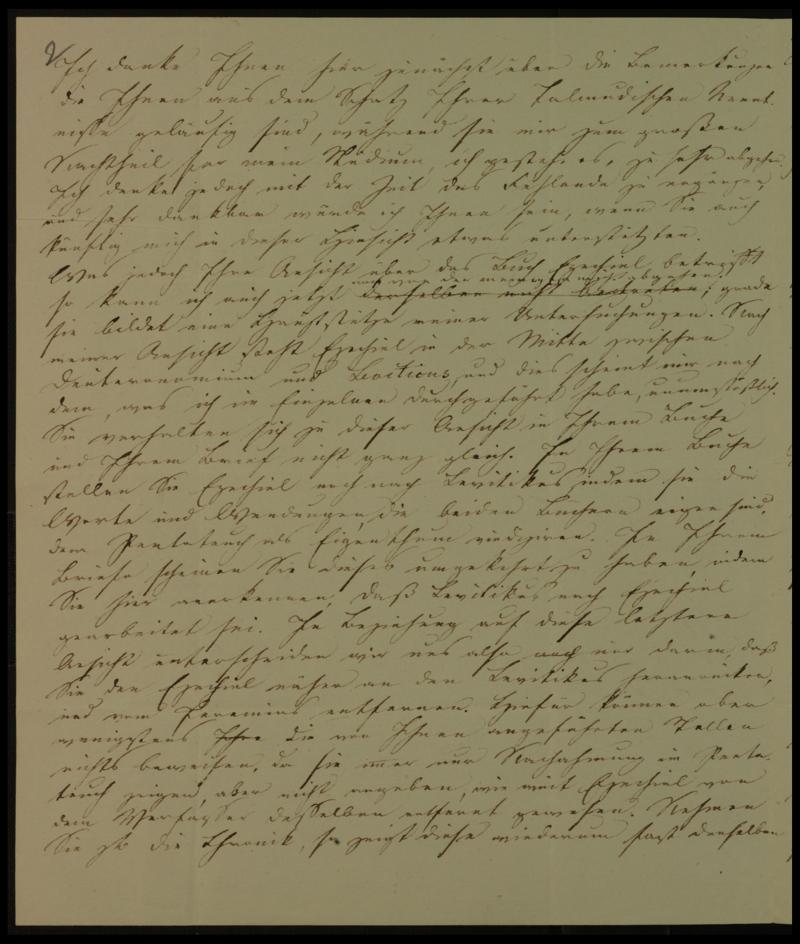 Ich danke Ihnen hier zunächst über die Bemerkungen
die Ihnen aus dem Schatz Ihrer Talmudischen Kennt-
nisse geläufig sind, während sie mir zum großen
Nachtheil für mein Studium, ich gesteh es, zu sehr abgehen.
Ich denke jedoch mit der Zeit das Fehlende zu ergänzen,
und sehr dankbar würde ich Ihnen sein, wenn Sie auch
künftig mich in dieser Hinsicht etwas unterstützten.
Was jedoch Ihre Ansicht über das Buch Ezechiel betrifft
so kann ich auch jetzt von der meinigen nicht abgehen; grade
sie bildet eine Hauptstütze meiner Untersuchungen. Nach
meiner Ansicht steht Ezechiel in der Mitte zwischen
Deuteronomium und Leviticus, und dies scheint mir nach
dem, was ich im Einzelnen durchgeführt habe, unumstößlich.
Sie verhalten sich zu dieser Ansicht in Ihrem Buche
und Ihrem Brief nicht ganz gleich. In Ihrem Buche
stellen Sie Ezechiel noch nach Levitikus indem sie die
Worte und Wendungen, die beiden Büchern eigen sind,
dem Pentateuch als Eigenthum vindiziren. In Ihrem
Briefe scheinen Sie dieses umgekehrt zu haben, indem
Sie hier anerkennen, daß Levitikus nach Ezechiel
gearbeitet sei. In Beziehung auf diese letztere
Ansicht unterscheiden wir uns also nur darin, daß
Sie den Ezechiel näher an den Levitikus heranrücken,
und vom Jeremias entfernen. Hiefür können aber
wenigstens die von Ihnen angeführten Stellen
nichts beweisen, da sie immer nur Nachahmung im Penta-
teuch zeigen, aber nicht angeben, wie weit Ezechiel von
dem Verfasser desselben entfernt gewesen. Nehmen
Sie die Chronik, so zeigt diese wiederum fast denselben